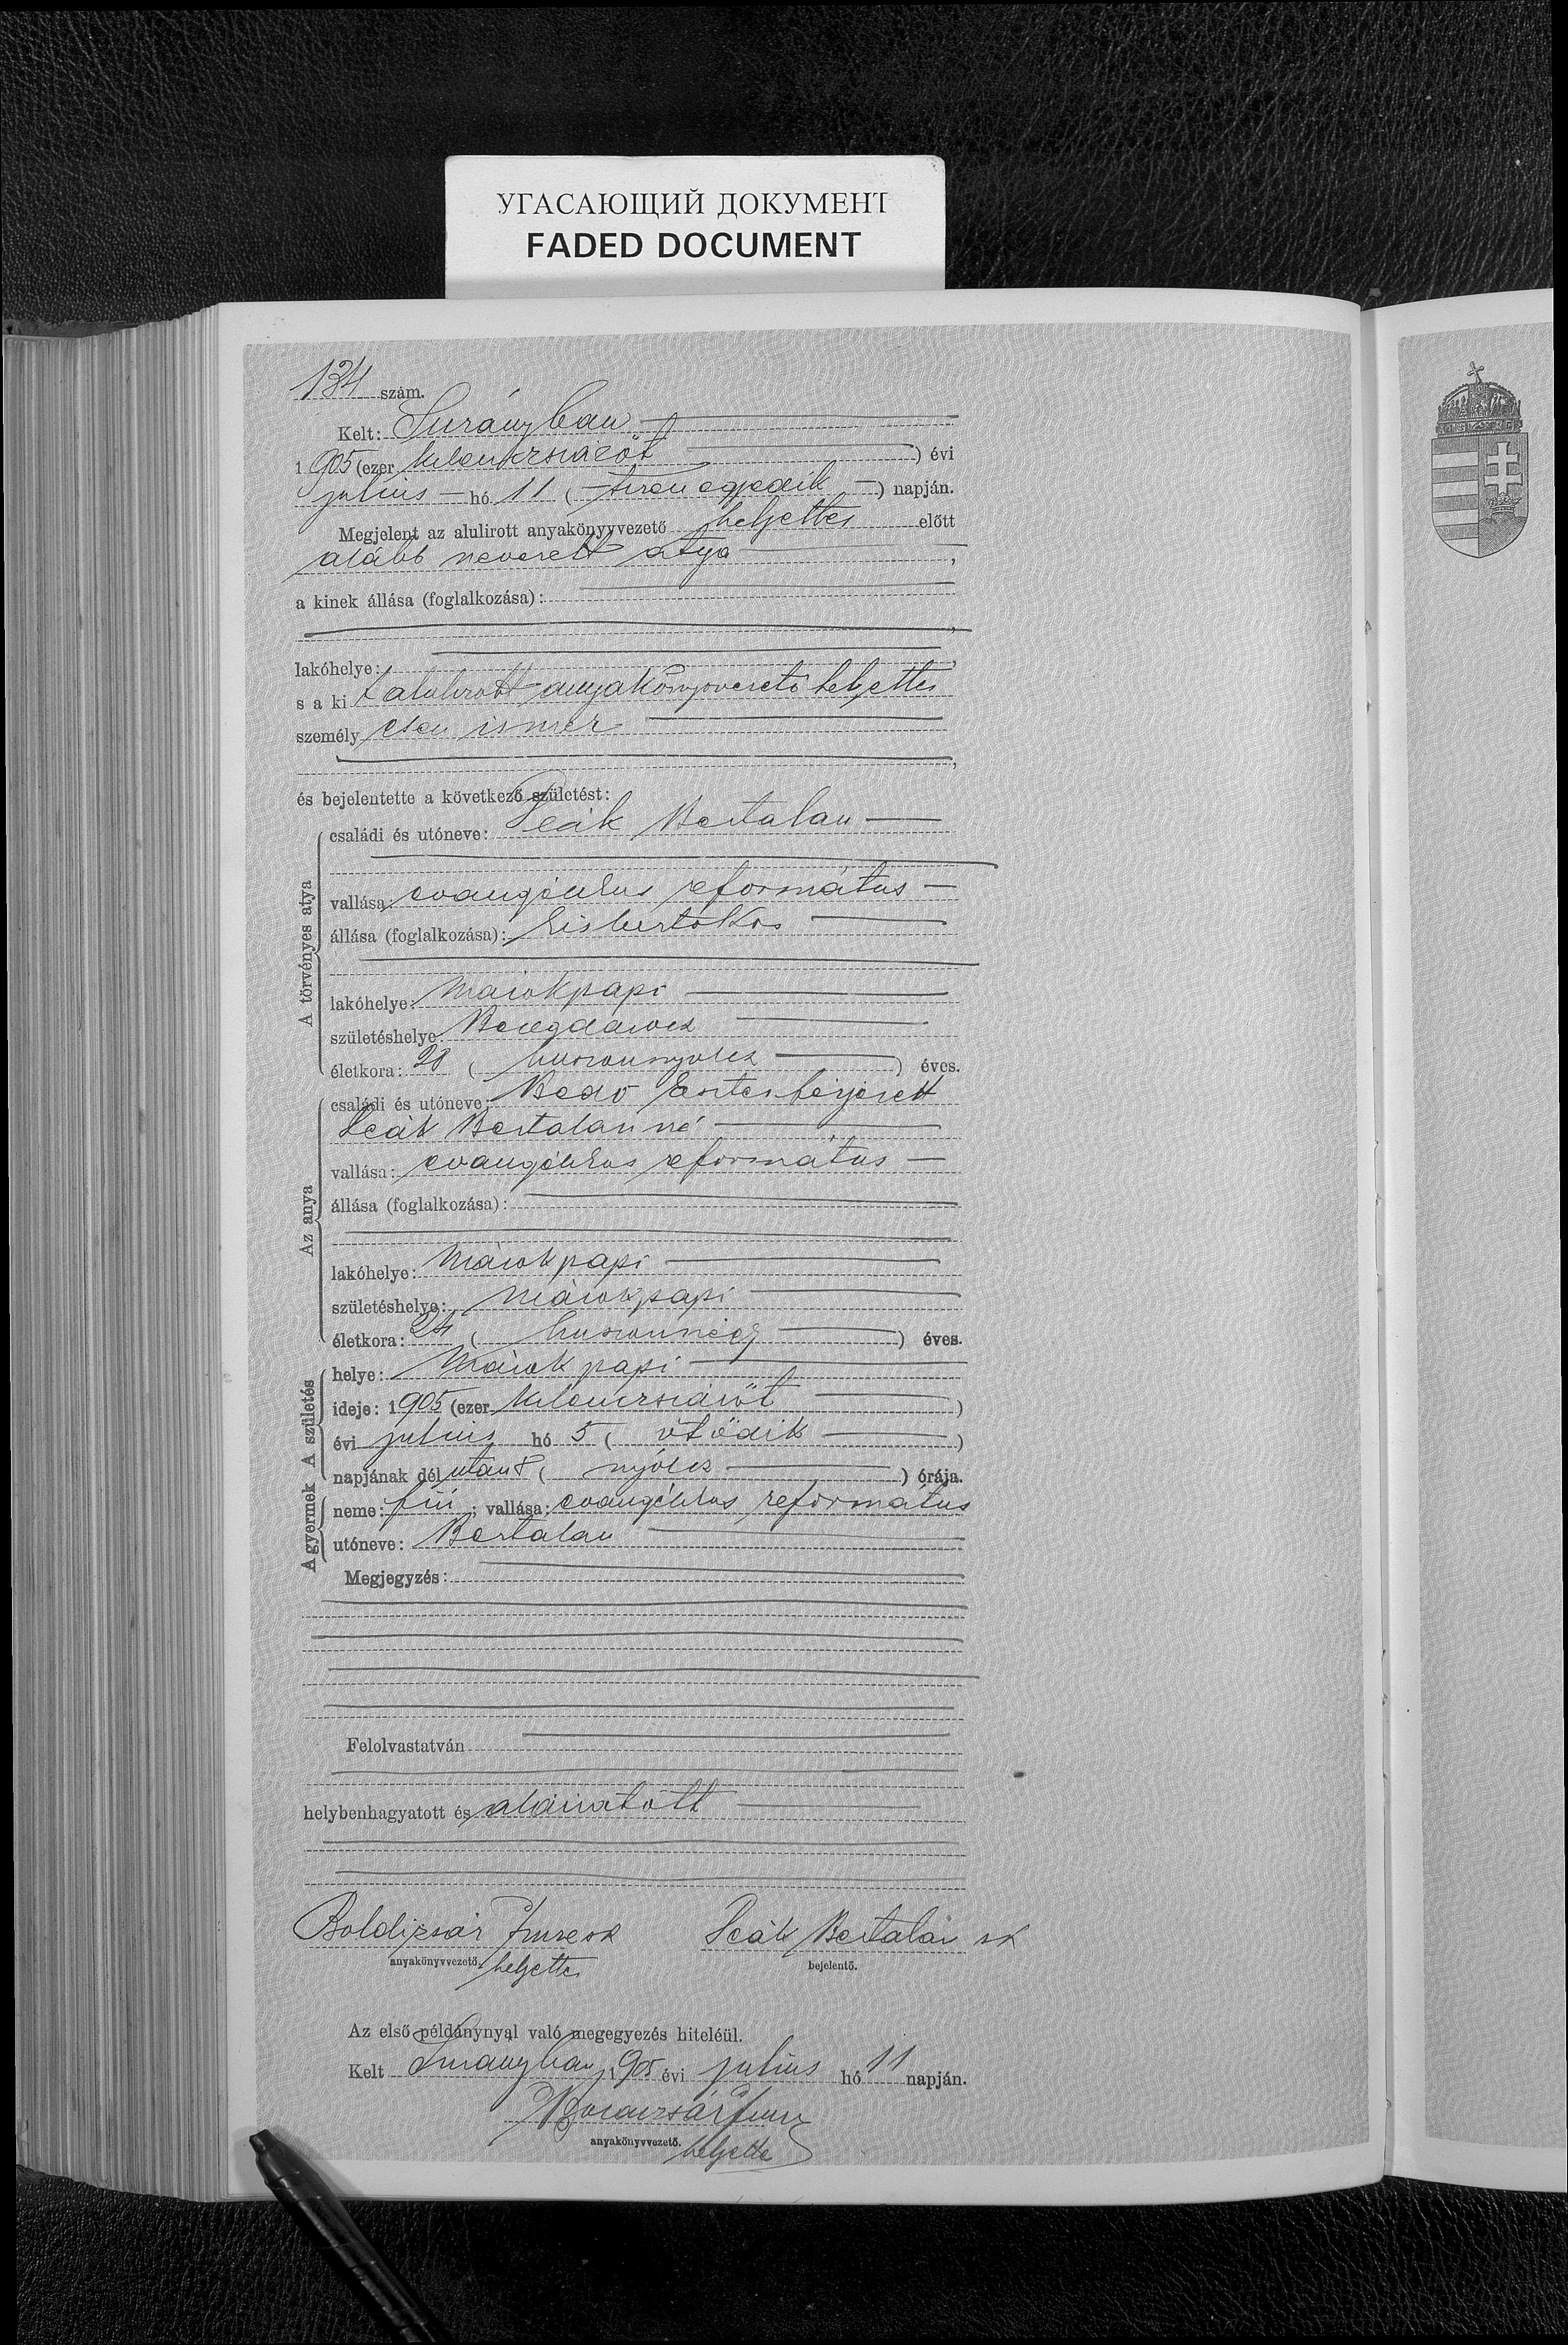 УГАСАЮЩИЙ ДОКУМЕНТ
FADED DOCUMENT
134 szám.
Kelt: Surányban
1905 (ezer kilenczszázöt) évi
julius hó 11 (tizenegyedik) napján.
Megjelent az alulirott anyakönyvvezető helyettes előtt
alább nevezett atya,
a kinek állása (foglalkozása):
lakóhelye:
s a ki alulirott anyakönyvvezető helyettes
személyesen ismer
és bejelentette a következő születést:
A törvényes atya
családi és utóneve: Deák Bertalan
vallása: evangélikus református
állása (foglalkozása): kisbirtokos
lakóhelye: Márokpapi
születéshelye: Beregdarócz
életkora: 28 (huszonnyolcz) éves.
Az anya
családi és utóneve: Bedő Eszter férjezett
Deák Bertalanné
vallása: evangélikus református
állása (foglalkozása):
lakóhelye: Márokpapi
születéshelye: Márokpapi
életkora: 24 (huszonnégy) éves.
A születés
helye: Márokpapi
ideje: 1905 (ezer kilenczszázöt)
évi julius hó 5 (ötödik)
napjának délután 8 (nyolcz) órája.
A gyermek
neme: fiú; vallása: evangélikus református
utóneve: Bertalan
Megjegyzés:
Felolvastatván
helybenhagyatott és aláiratott
Boldizsár Imre sk Deák Bertalan sk
anyakönyvvezető helyettes bejelentő.
Az első példánynyal való megegyezés hiteléül.
Kelt Surányban, 1905 évi julius hó 11 napján.
Boldizsár Imre
anyakönyvvezető. helyettes